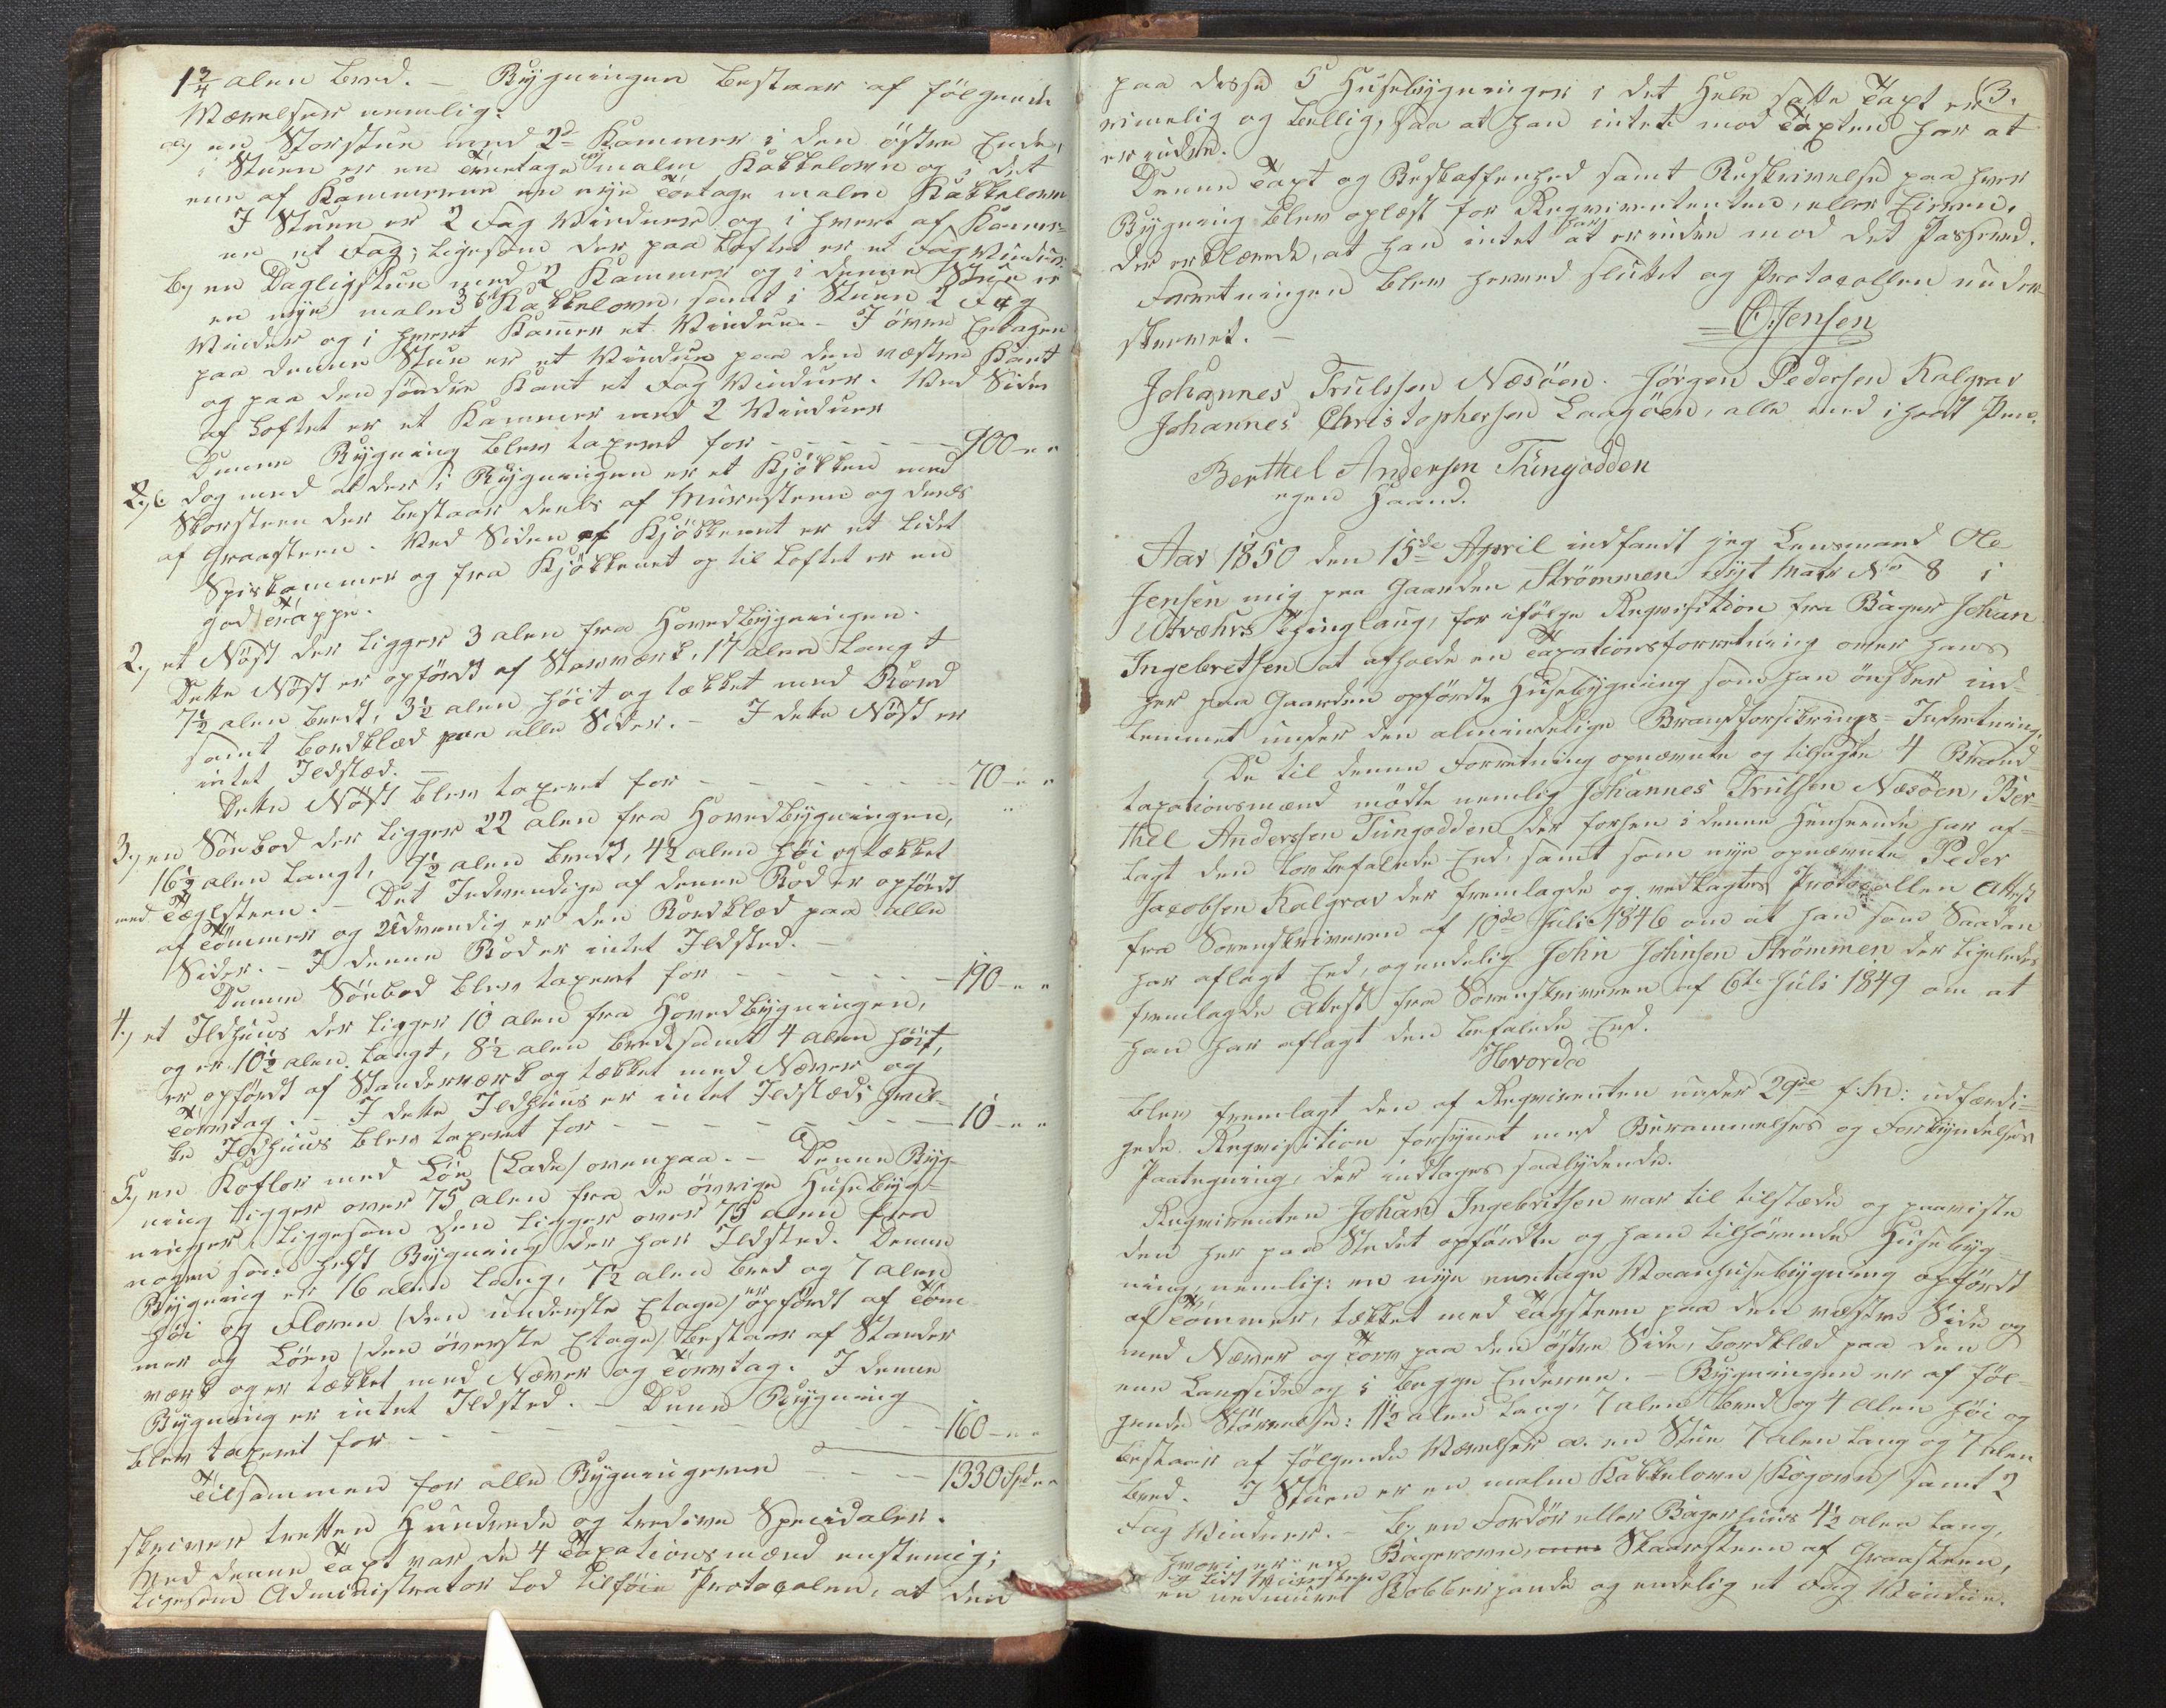 1 3/4 alen bred. – Bygningen bestaar af følgende
Værelser nemlig:
a, en Storstue med 2de Kammer i den østre Ende,
i Stuen er en treetages malm Kakkelovn og i det
ene af Kammerne en nye toetage malm Kakkelovn
I Stuen er 2 Fag Vinduer og i hvert af Kamme-
ne et Fag; ligesom der paa Loftet er et Fag Vinduer
b, en Dagligstue med 2 Kammer og i denne Stue er
en nye malm Kakkelovn, samt i Stuen 2 Fag
Vinduer og i hvert Kammer et Vindue. – I øvre Etagen
paa denne Stue er et Vindue paa den væstre Kant
og paa den søndre Kant et Fag Vinduer. Ved Siden
af Loftet er et Kammer med 2 Vinduer
Denne Bygning blev taxeret for – – – – – 900 – " "
dog med at der i Bygningen er et Kjøkken med
Skorsteen der bestaar deels af Muursteen og deels
af Graasteen. Ved Siden af Kjøkkenet er et lidet
Spiskammer og fra Kjøkkenet op til Loftet er en
god Trappe.
2, et Nøst der ligger 3 alen fra Hovedbygningen.
Dette Nøst er opført af Stavværk, 17 alen langt
7 1/2 alen bredt, 3 1/2 alen høit og tækket med Bord
samt bordklæd paa alle Sider. – I dette Nøst er
intet Ildsted. –
Dette Nøst blev taxeret for – – – – – 70 – " "
3, en Søebod der ligger 22 alen fra Hovedbygningen,
16 1/2 alen langt, 9 1/2 alen bredt, 4 1/2 alen høi og tækket
med Tæglsteen. – Det Indvendige af denne Bod er opført
af Tømmer og Udvendig er den Bordklæd paa alle
Sider. – I denne Bod er intet Ildsted. –
Denne Søebod blev taxeret for – – – – – 190 – " "
4, et Ildhuus der ligger 10 alen fra Hovedbygningen,
og er 10 1/2 alen langt, 8 1/2 alen bred samt 4 alen høit,
er opført af Standerværk og tækket med Næver og
Torvtag. – I dette Ildhuus er intet Ildsted; hvil-
ke Ildhuus blev taxeret for – – – – – 10 – " "
5, en Koflor med Løe (Lade) ovenpaa. – Denne Byg-
ning ligger over 75 alen fra de øvrige Husebyg-
ninger, liggesom den ligger over 75 alen fra
nogen som helst Bygning der har Ildsted. Denne
Bygning er 16 alen lang, 7 1/2 alen bred og 7 alen
høi og Floren (den underste Etage) er opført af Tøm-
mer og Løen (den øverste Etage) bestaar af Stander
værk og er tækket med Næver og Torvtag. I denne
Bygning er intet Ildsted. – Denne Bygning
blev taxeret for – – – – – 160 – " "
Tilsammen for alle Bygningerne – – – 1330 Spd " "
skriver tretten Hundrede og tredive Speciedaler.
Med denne Taxt var de 4 Taxationsmænd enstemig;
ligesom Administrator lod tilføie Protocolen, at den
3.
paa disse 5 Husebygninger i det Hele satte Taxt er
rimelig og billig, saa at han intet mod Taxten har at
erindre.
Denne Taxt og Beskaffenhed samt Beskrivelse paa hver
Bygning blev oplæst for Reqvirenten, eller Eieren,
der erklærede, at han intet har at erindre mod det Passerede.
Forretningen blev herved sluttet og Protocollen under-
skrevet. –
O. Jensen
Johannes Trulssen Næsøen. Jørgen Pedersen Kalgrav
Johannes Christophersen Laagøen, alle med ihold Pen.
Berthel Andersen Tungodden
egen Haand.
Aar 1850 den 15de April indfandt jeg Lensmand Ole
Jensen mig paa Gaarden Strømmen nyt Matr No 8 i
Utvæhrs Thinglaug, for ifølge Reqvisition fra Bager Johan
Ingebretsen at afholde en Taxationsforretning over hans
her paa Gaarden opførte Husebygning som han ønsker ind-
lemmet under den almindelige Brandforsikrings-Indretning.
Da til denne Forretning opnævnte og tilsagte 4 Brand-
taxationsmænd mødte nemlig Johannes Trulsen Næsøen, Ber-
thel Anderssen Tungodden der forhen i denne Henseende har af-
lagt den lovbefalede Eed, samt som nye opnævnte Peder
Jacobsen Kalgrav der fremlagde og vedlagtes Protocollen Attest
fra Sorenskriveren af 10de Juli 1846 om at han som Saadan
har aflagt Eed, og endelig John Johnsen Strømmen der ligeledes
fremlagde Attest fra Sorenskriveren af 6te Juli 1849 om at
han har aflagt den befalede Eed.
Hvorda
blev fremlagt den af Reqvirenten under 29de f: M: udfærdi-
gede Reqvisition forsynet med Berammelses og Forkyndelses
Paategning, der indtages saalydende.
Reqvirenten Johan Ingebritsen var til tilstæde og paaviste
den her paa Stedet opførdte og ham tilhørende Husebyg-
ning nemlig: en nye eenetages Vaanhusebygning opført
af Tømmer, tækket med Tagsteen paa den væstre Side og
med Næver og Torv paa den østre Side, bordklæd paa den
ene Langside og i begge Enderne. – Bygningen er af føl-
gende Størrelse: 11 1/2 alen lang, 7 alen bred og 4 alen høi og
bestaar af følgende Værelser a. en Stue 7 alen lang og 7 alen
bred. I Stuen er en malm Kakkelovn (Kogovn) samt 2
Fag Vinduer. – b, en Fordør eller Bagerhuus 4 1/2 alen lang,
hvori er en Bagerovn, Skaarsteen af Graasteen,
og lidt Muursteen
en nedmuret Kobberpande og endelig et Fag Vindue.